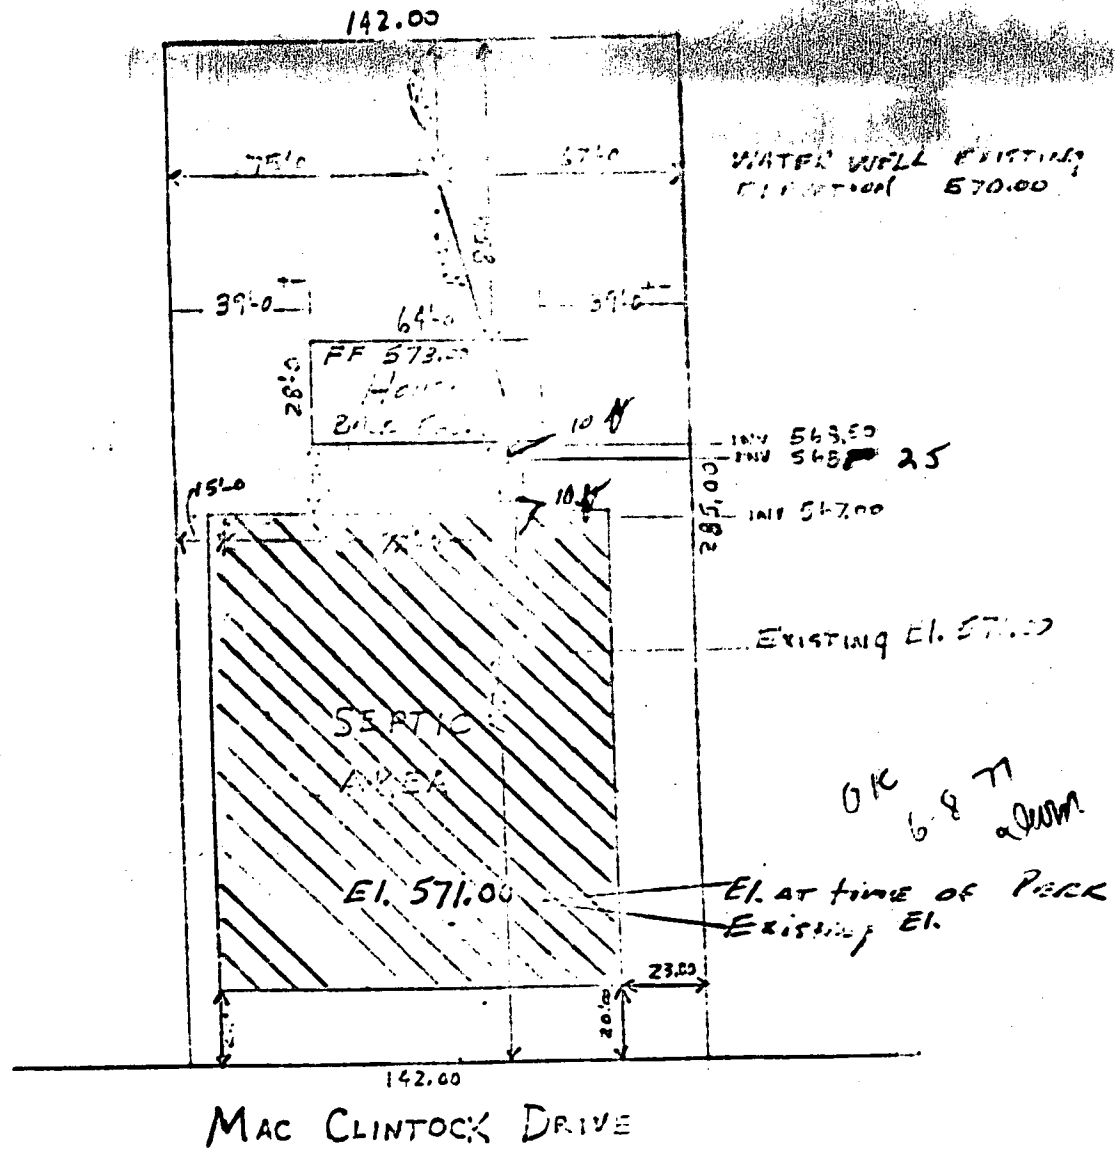 142.00
75'-0
67'-0
WATER WELL EXISTING
ELEVATION 570.00
85'
39'-0 +-
39'-0 +-
64'-0
FF 573.00
28'-0
House
10 ft
INV 568.50
INV 568 25
15'-0
10 ft
INV 567.00
285.00
EXISTING El. 571.00
SEPTIC
AREA
OK
6 8 77
El. 571.00
El. AT time of PERK
Existing El.
23.00
20'-0
142.00
MAC CLINTOCK DRIVE